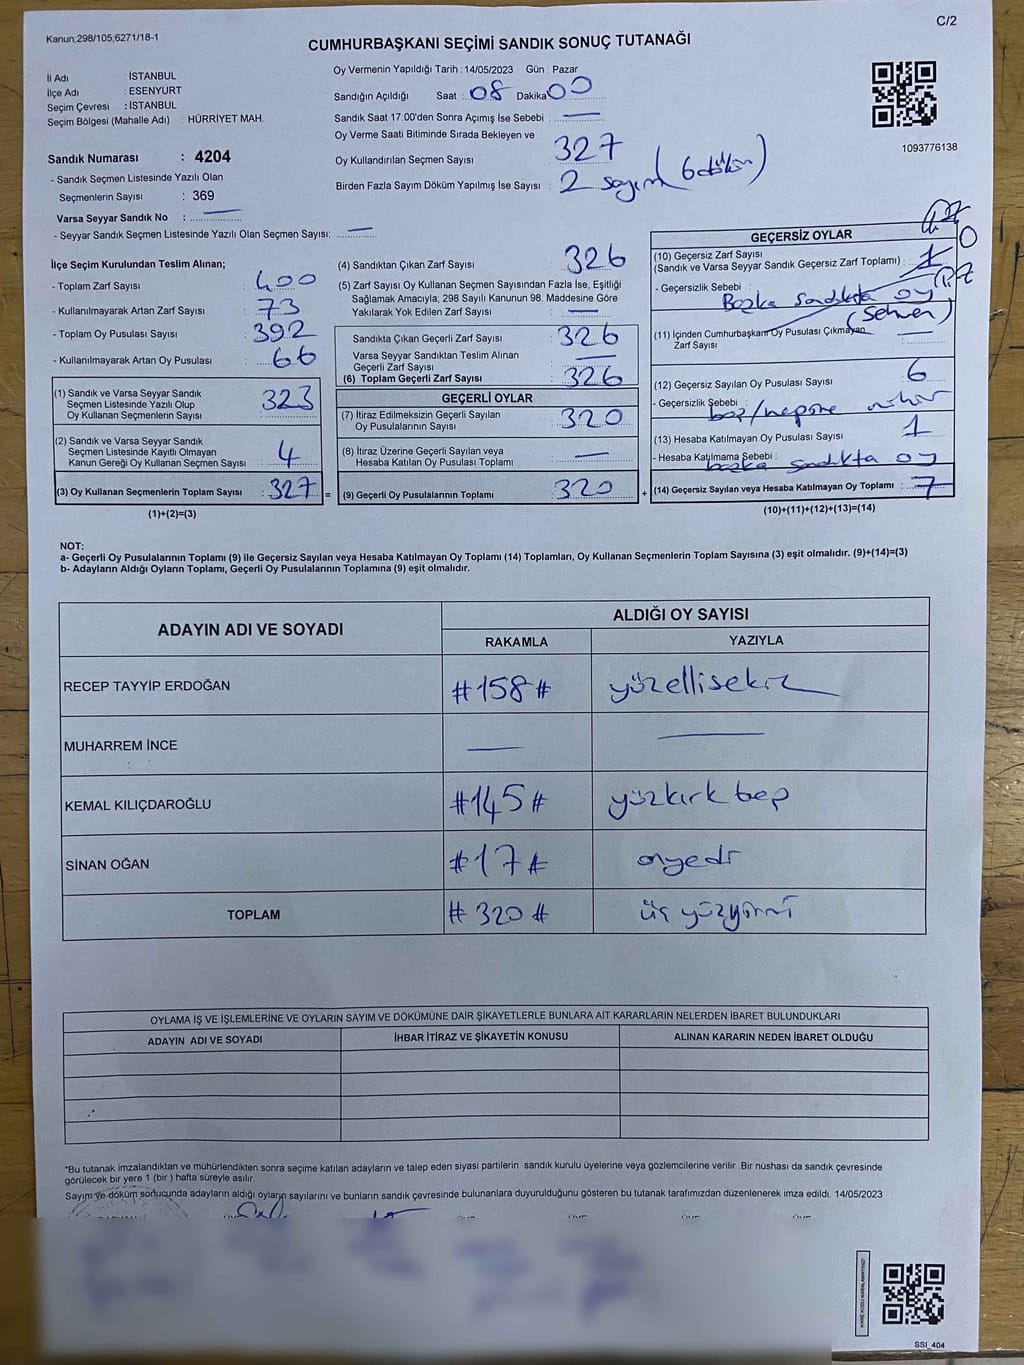 C/2
Kanun;298/105;6271/18-1
CUMHURBAŞKANI SEÇİMİ SANDIK SONUÇ TUTANAĞI
İl Adı : İSTANBUL
İlçe Adı : ESENYURT
Seçim Çevresi : İSTANBUL
Seçim Bölgesi (Mahalle Adı) : HÜRRİYET MAH.
Oy Vermenin Yapıldığı Tarih : 14/05/2023 Gün : Pazar
Sandığın Açıldığı Saat : 08 Dakika 00
Sandık Saat 17:00'den Sonra Açımış İse Sebebi : —
Oy Verme Saati Bitiminde Sırada Bekleyen ve
Oy Kullandırılan Seçmen Sayısı : 327
Birden Fazla Sayım Döküm Yapılmış İse Sayısı : 2 sayım
1093776138
Sandık Numarası : 4204
- Sandık Seçmen Listesinde Yazılı Olan
Seçmenlerin Sayısı : 369
Varsa Seyyar Sandık No : —
- Seyyar Sandık Seçmen Listesinde Yazılı Olan Seçmen Sayısı: —
İlçe Seçim Kurulundan Teslim Alınan;
- Toplam Zarf Sayısı : 400
- Kullanılmayarak Artan Zarf Sayısı : 73
- Toplam Oy Pusulası Sayısı : 392
- Kullanılmayarak Artan Oy Pusulası : 66
(1) Sandık ve Varsa Seyyar Sandık
Seçmen Listesinde Yazılı Olup
Oy Kullanan Seçmenlerin Sayısı : 323
(2) Sandık ve Varsa Seyyar Sandık
Seçmen Listesinde Kayıtlı Olmayan
Kanun Gereği Oy Kullanan Seçmen Sayısı : 4
(3) Oy Kullanan Seçmenlerin Toplam Sayısı : 327 =
(1)+(2)=(3)
(4) Sandıktan Çıkan Zarf Sayısı : 326
(5) Zarf Sayısı Oy Kullanan Seçmen Sayısından Fazla İse, Eşitliği
Sağlamak Amacıyla, 298 Sayılı Kanunun 98. Maddesine Göre
Yakılarak Yok Edilen Zarf Sayısı : —
Sandıkta Çıkan Geçerli Zarf Sayısı : 326
Varsa Seyyar Sandıktan Teslim Alınan
Geçerli Zarf Sayısı : —
(6) Toplam Geçerli Zarf Sayısı : 326
GEÇERLİ OYLAR
(7) İtiraz Edilmeksizin Geçerli Sayılan
Oy Pusulalarının Sayısı : 320
(8) İtiraz Üzerine Geçerli Sayılan veya
Hesaba Katılan Oy Pusulası Toplamı : —
(9) Geçerli Oy Pusulalarının Toplamı : 320 +
GEÇERSİZ OYLAR
(10) Geçersiz Zarf Sayısı
(Sandık ve Varsa Seyyar Sandık Geçersiz Zarf Toplamı) : 1 0
- Geçersizlik Sebebi : Başka sandıkta oy
(sehven)
(11) İçinden Cumhurbaşkanı Oy Pusulası Çıkmayan
Zarf Sayısı : —
(12) Geçersiz Sayılan Oy Pusulası Sayısı : 6
- Geçersizlik Sebebi : boş/hepsine mühür
(13) Hesaba Katılmayan Oy Pusulası Sayısı : 1
- Hesaba Katılmama Sebebi : başka sandıkta oy
(14) Geçersiz Sayılan veya Hesaba Katılmayan Oy Toplamı : 7
(10)+(11)+(12)+(13)=(14)
NOT:
a- Geçerli Oy Pusulalarının Toplamı (9) ile Geçersiz Sayılan veya Hesaba Katılmayan Oy Toplamı (14) Toplamları, Oy Kullanan Seçmenlerin Toplam Sayısına (3) eşit olmalıdır. (9)+(14)=(3)
b- Adayların Aldığı Oyların Toplamı, Geçerli Oy Pusulalarının Toplamına (9) eşit olmalıdır.
ADAYIN ADI VE SOYADI ALDIĞI OY SAYISI
RAKAMLA YAZIYLA
RECEP TAYYİP ERDOĞAN #158# yüzellisekiz
MUHARREM İNCE — —
KEMAL KILIÇDAROĞLU #145# yüzkırk beş
SİNAN OĞAN #17# onyedi
TOPLAM #320# üç yüzyirmi
OYLAMA İŞ VE İŞLEMLERİNE VE OYLARIN SAYIM VE DÖKÜMÜNE DAİR ŞİKAYETLERLE BUNLARA AİT KARARLARIN NELERDEN İBARET BULUNDUKLARI
ADAYIN ADI VE SOYADI İHBAR İTİRAZ VE ŞİKAYETİN KONUSU ALINAN KARARIN NEDEN İBARET OLDUĞU
*Bu tutanak imzalandıktan ve mühürlendikten sonra seçime katılan adayların ve talep eden siyasi partilerin sandık kurulu üyelerine veya gözlemcilerine verilir. Bir nüshası da sandık çevresinde
görülecek bir yere 1 (bir ) hafta süreyle asılır.
Sayım ve döküm sonucunda adayların aldığı oyların sayılarını ve bunların sandık çevresinde bulunanlara duyurulduğunu gösteren bu tutanak tarafımızdan düzenlenerek imza edildi. 14/05/2023
SSI_404